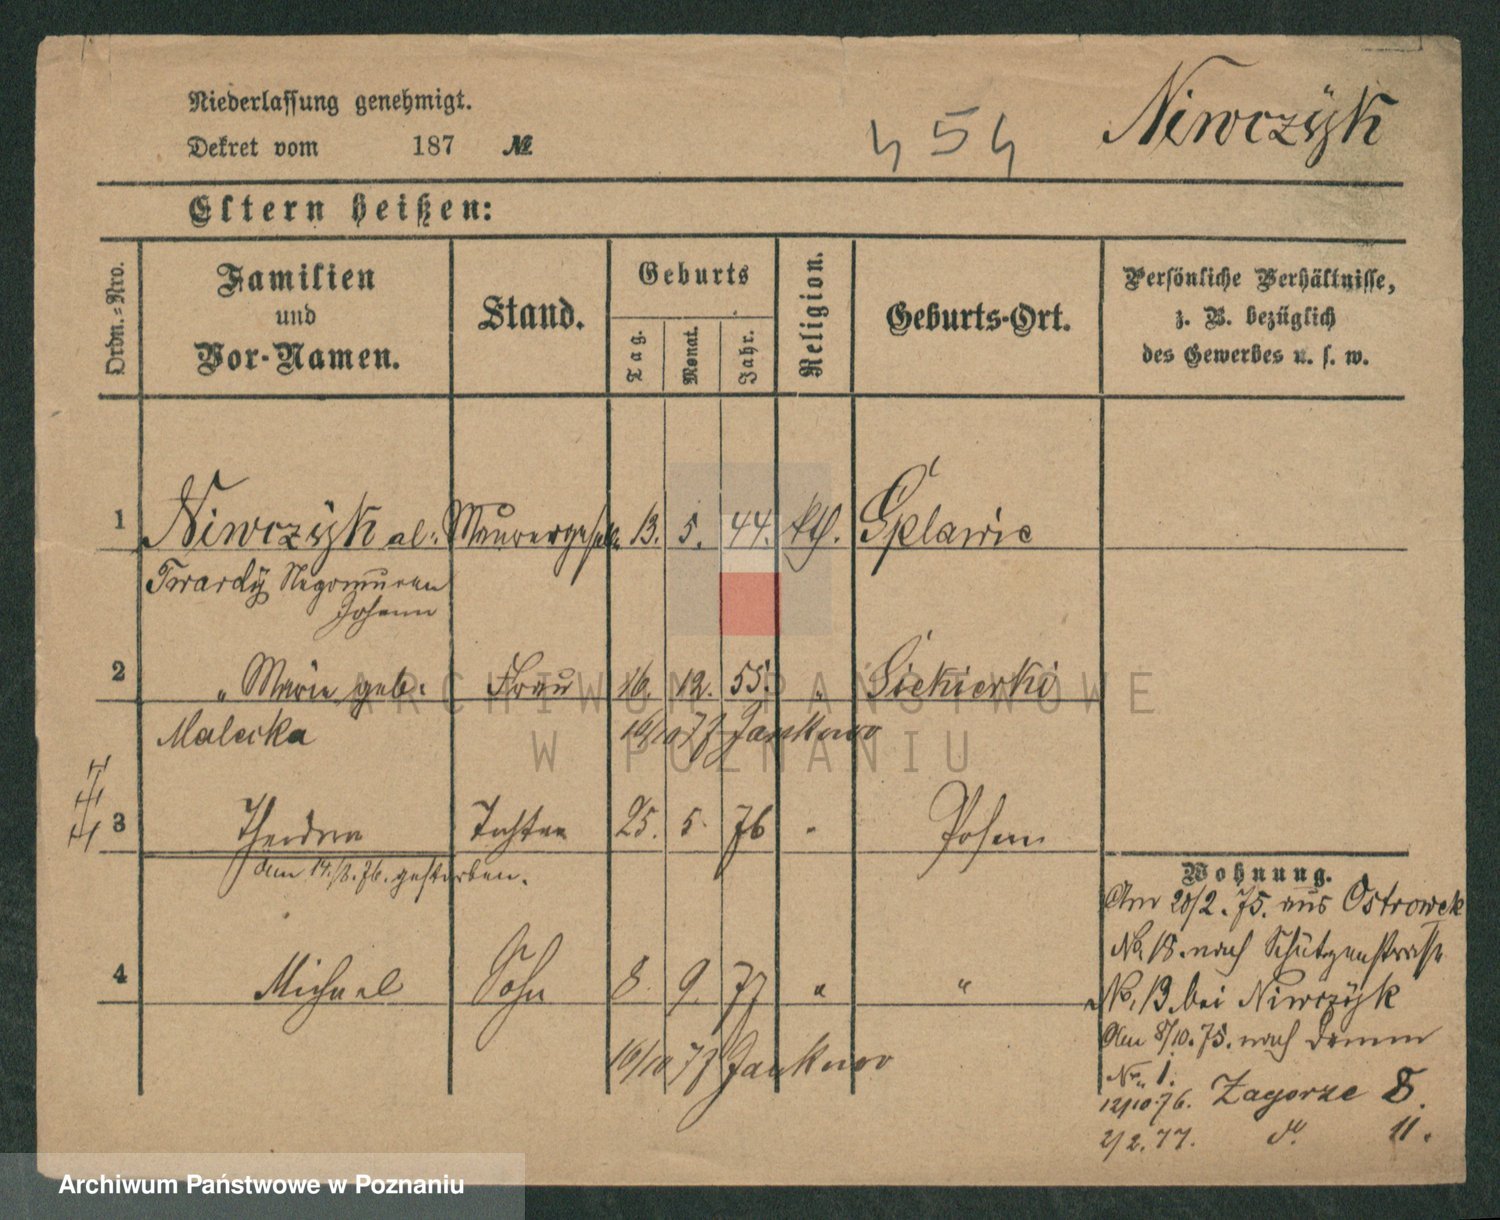 Niederlassung genehmigt.
Dekret vom 187 №
454
Niwczÿk
Eltern heißen:
Ordn.=Nro.
Familien
und
Vor-Namen.
Stand.
Geburts
Tag.
Monat.
Jahr.
Religion.
Geburts-Ort.
Persönliche Verhältnisse,
z. B. bezüglich
des Gewerbes u. s. w.
1 Niwczÿk al: Maurergesell. 13. 5. 44. kth. Splawie
Twardÿ
Johann
2 " Marie geb: Frau 16. 12. 55. " Siekierki
Malecka 16/10 77 Jankowo
3 Theodora Tochter 25. 5. 76 " Posen
am 14./8. 76. gestorben.
4 Michael Sohn 8. 9. 77 " "
16/10 77 Jankowo
Wohnung.
Am 20/2. 75. aus Ostrowek
No. 18. nach Schützenstrasse
No. 13. bei Niwczÿk
Am 8/10. 75. nach Damm
No. 1.
12/10. 76. Zagorze 8.
2/2. 77. do. 11.
ARCHIWUM PAŃSTWOWE
W POZNANIU
Archiwum Państwowe w Poznaniu